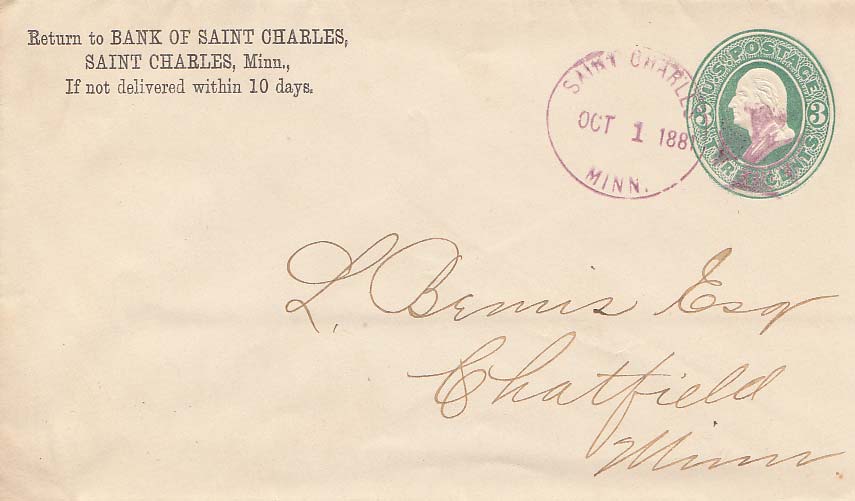 Return to BANK OF SAINT CHARLES,
SAINT CHARLES, Minn.,
If not delivered within 10 days.
SAINT CHARLES
OCT 1 1881
MINN.
U.S. POSTAGE
3 3
THREE CENTS
L. Bemis Esq
Chatfield
Minn